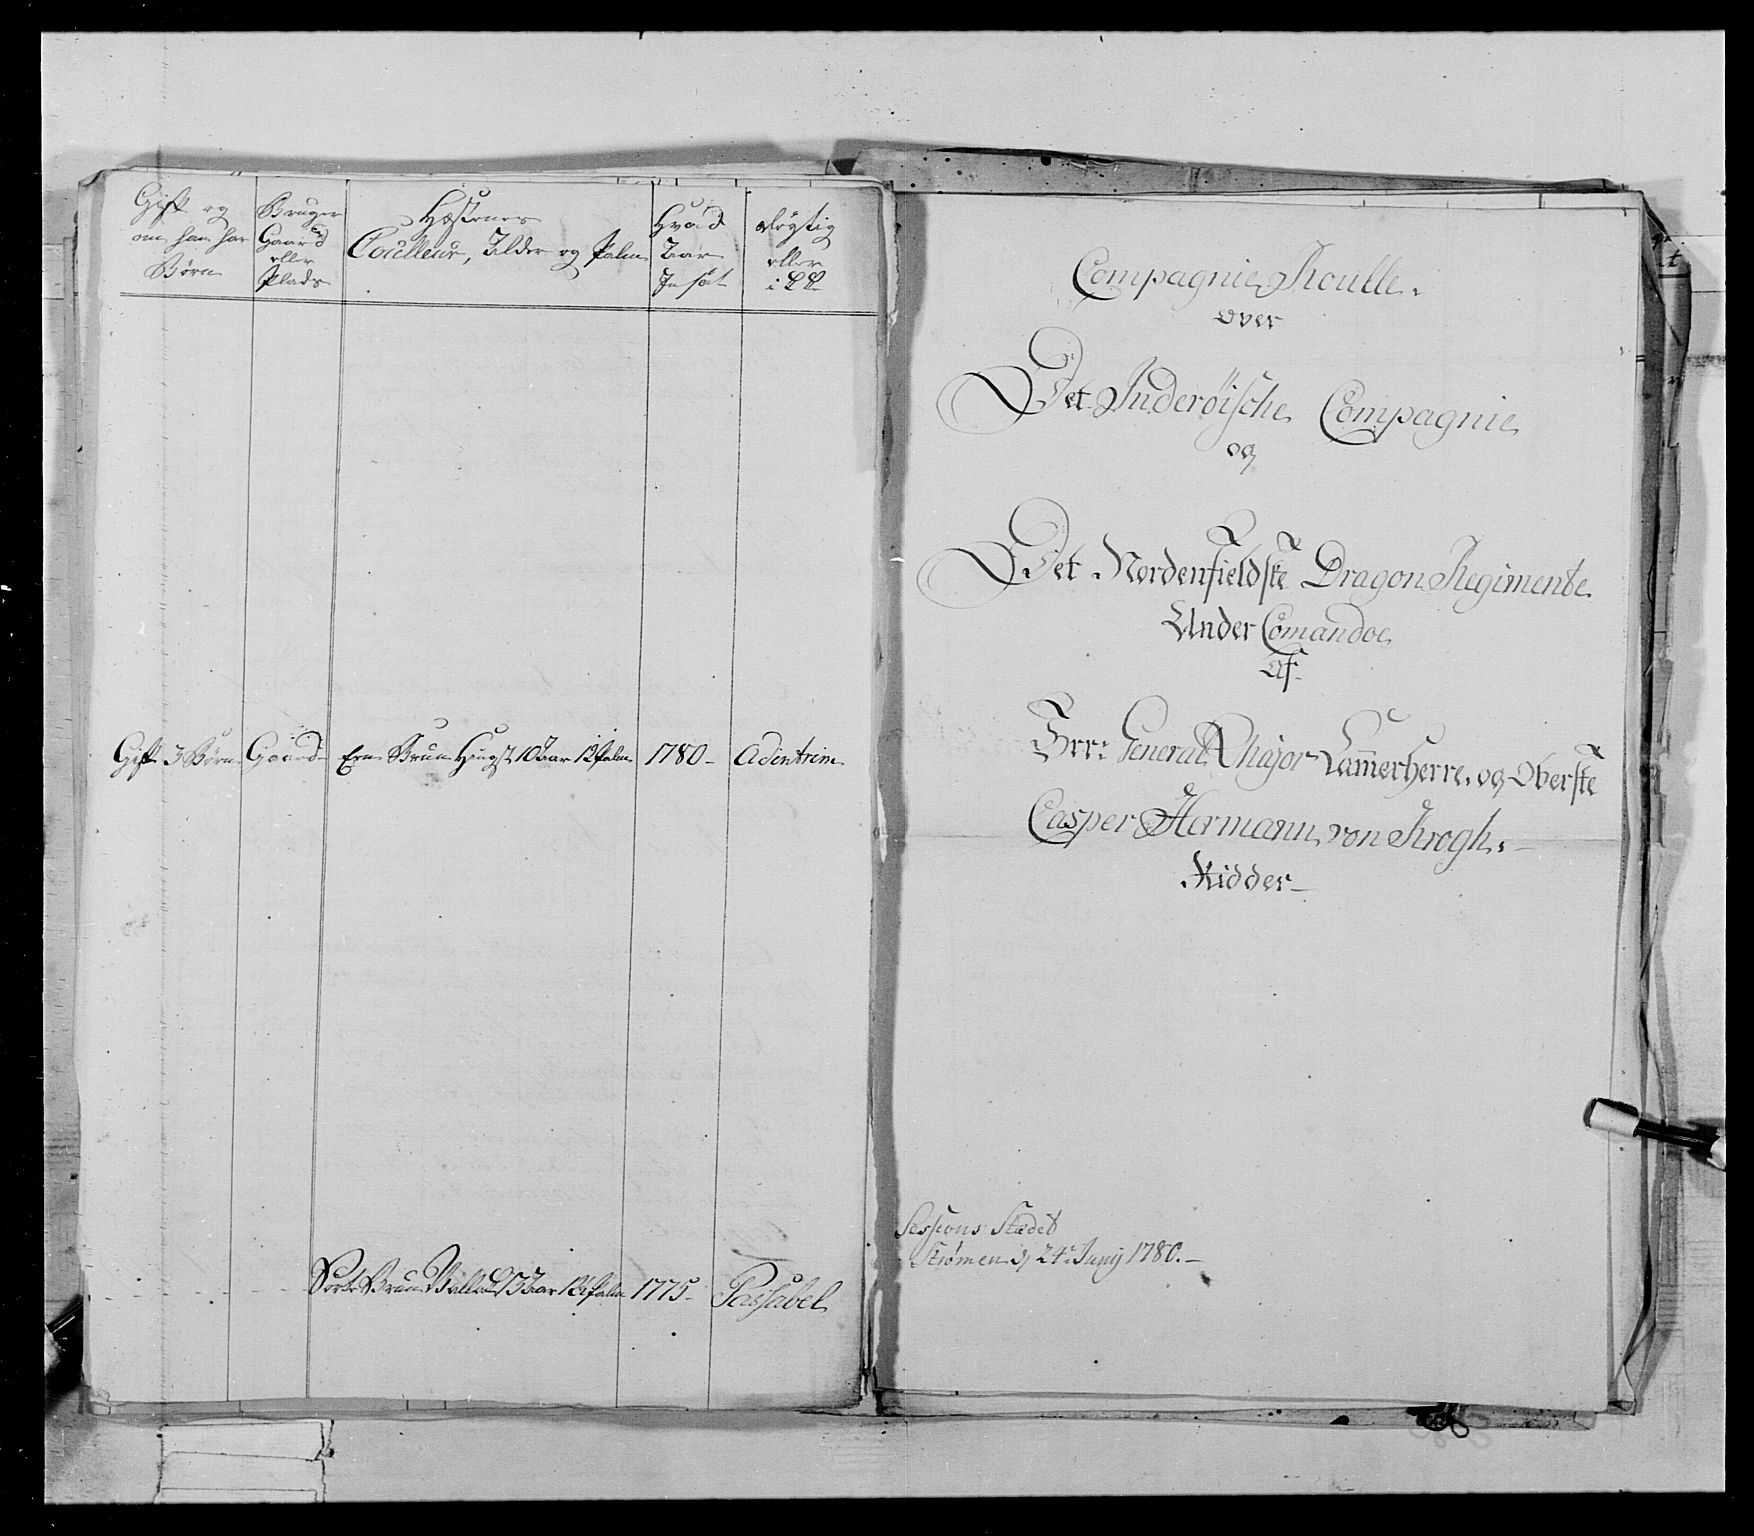 Gift og
om han har
Børn
Bruger
Gaard
eller
Plads
Hæstenes
Coulleur, Alder og Palm
Hvad
Aar
Insat
døgtig
eller
Gift 3 Børn Gaard Een Brun Hingst 10 Aar 12 Palm 1780 - Adintrim
Sorte Brun Vallach 13 Aar 12 Palm 1775 - Passabel
Compagnie Roulle.
over
Det Inderöische Compagnie
og
Det Nordenfieldske Dragon Regimente
Under Comandoe
Af
Hrr: General Major Kamerherre og Oberste
Casper Hermann von Krogh. -
Ridder -
Sessions Stædet
Strømen d. 24de Junij 1780. -